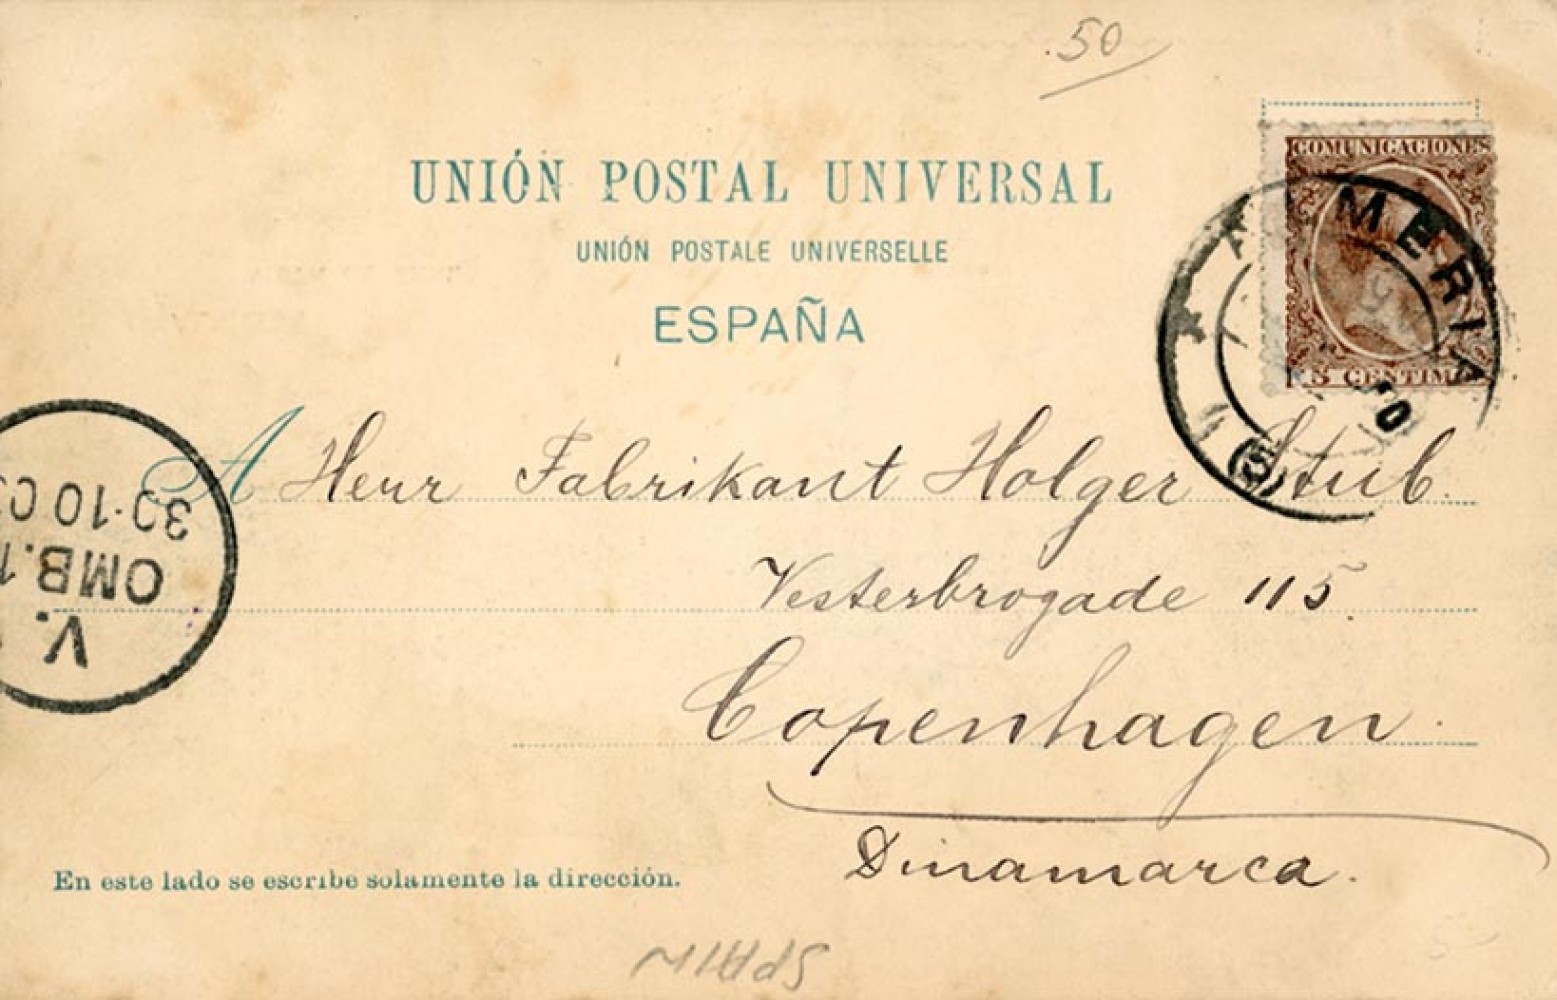 .50
UNIÓN POSTAL UNIVERSAL
UNIÓN POSTALE UNIVERSELLE
ESPAÑA
COMUNICACIONES
5 CENTIM
ALMERIA
A Herr Fabrikant Holger Stub.
Vesterbrogade 115.
Copenhagen.
Dinamarca.
V.
OMB.1
30.10.0
En este lado se escribe solamente la dirección.
SPAIN